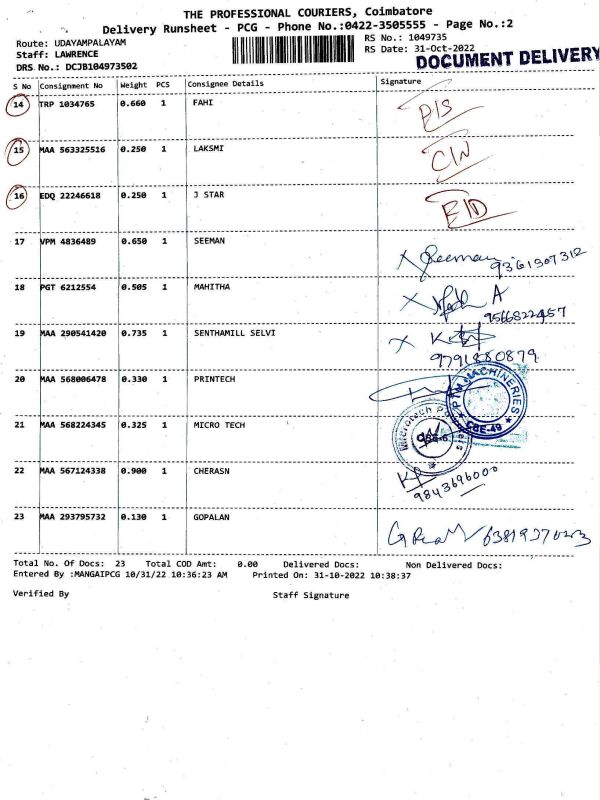 THE PROFESSIONAL COURIERS, Coimbatore
Delivery Runsheet - PCG - Phone No.:0422-3505555 - Page No.:2
Route: UDAYAMPALAYAM RS No.: 1049735
Staff: LAWRENCE RS Date: 31-Oct-2022
DRS No.: DCJB104973502 DOCUMENT DELIVERY
S No Consignment No Weight PCS Consignee Details Signature
14 TRP 1034765 0.660 1 FAHI
15 MAA 563325516 0.250 1 LAKSMI
16 EDQ 22246618 0.250 1 J STAR
17 VPM 4836489 0.650 1 SEEMAN Seeman
9361307312
18 PGT 6212554 0.505 1 MAHITHA
9566822457
19 MAA 290541420 0.735 1 SENTHAMILL SELVI
9791880879
20 MAA 568006478 0.330 1 PRINTECH MACHINERIES
CBE-49
21 MAA 568224345 0.325 1 MICRO TECH Microtech
22 MAA 567124338 0.900 1 CHERASN
9843696000
23 MAA 293795732 0.130 1 GOPALAN
Total No. Of Docs: 23 Total COD Amt: 0.00 Delivered Docs: Non Delivered Docs:
Entered By :MANGAIPCG 10/31/22 10:36:23 AM Printed On: 31-10-2022 10:38:37
Verified By Staff Signature